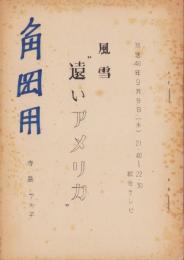 放送40年9月9日(木) 21:40〜22:30
総合テレビ
風雪
"遠いアメリカ"
角田用
寺島アキ子